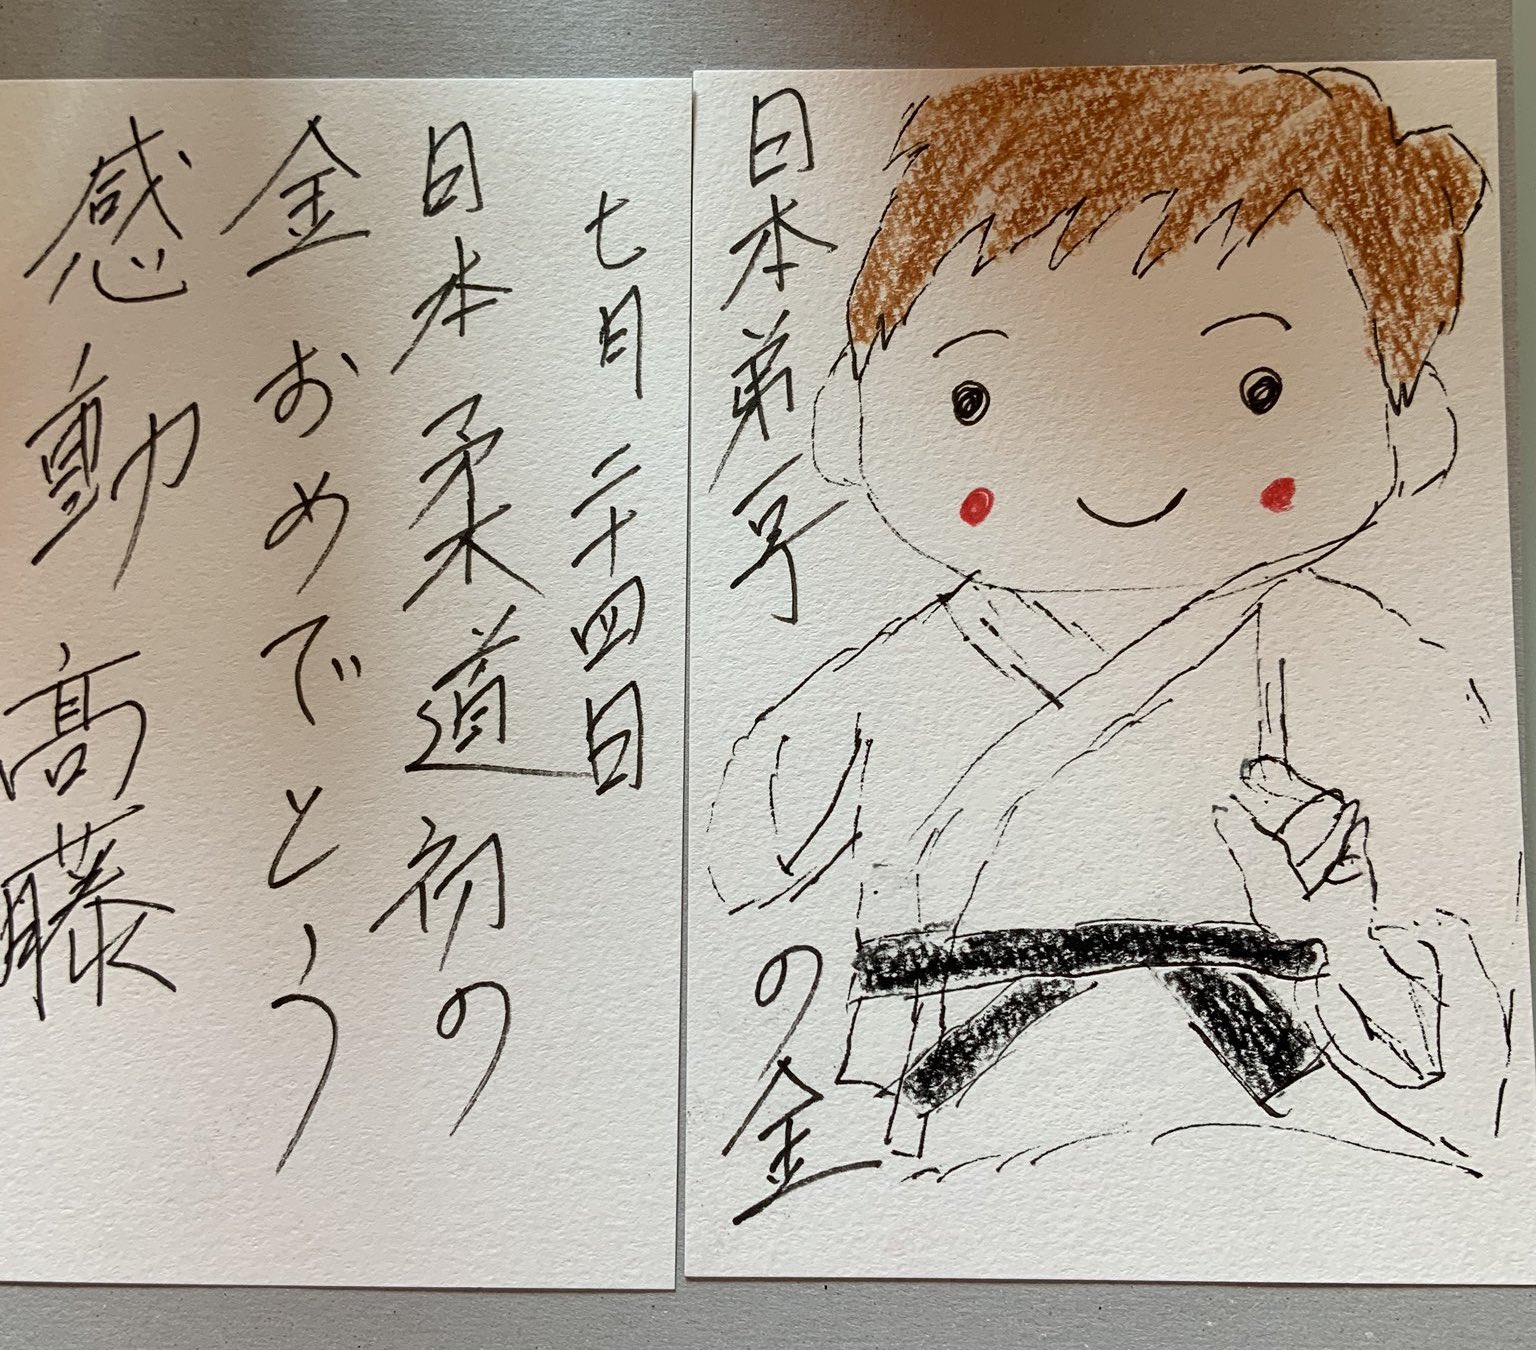 日本第一号の金
七月二十四日
日本柔道初の
金おめでとう
感動 髙藤